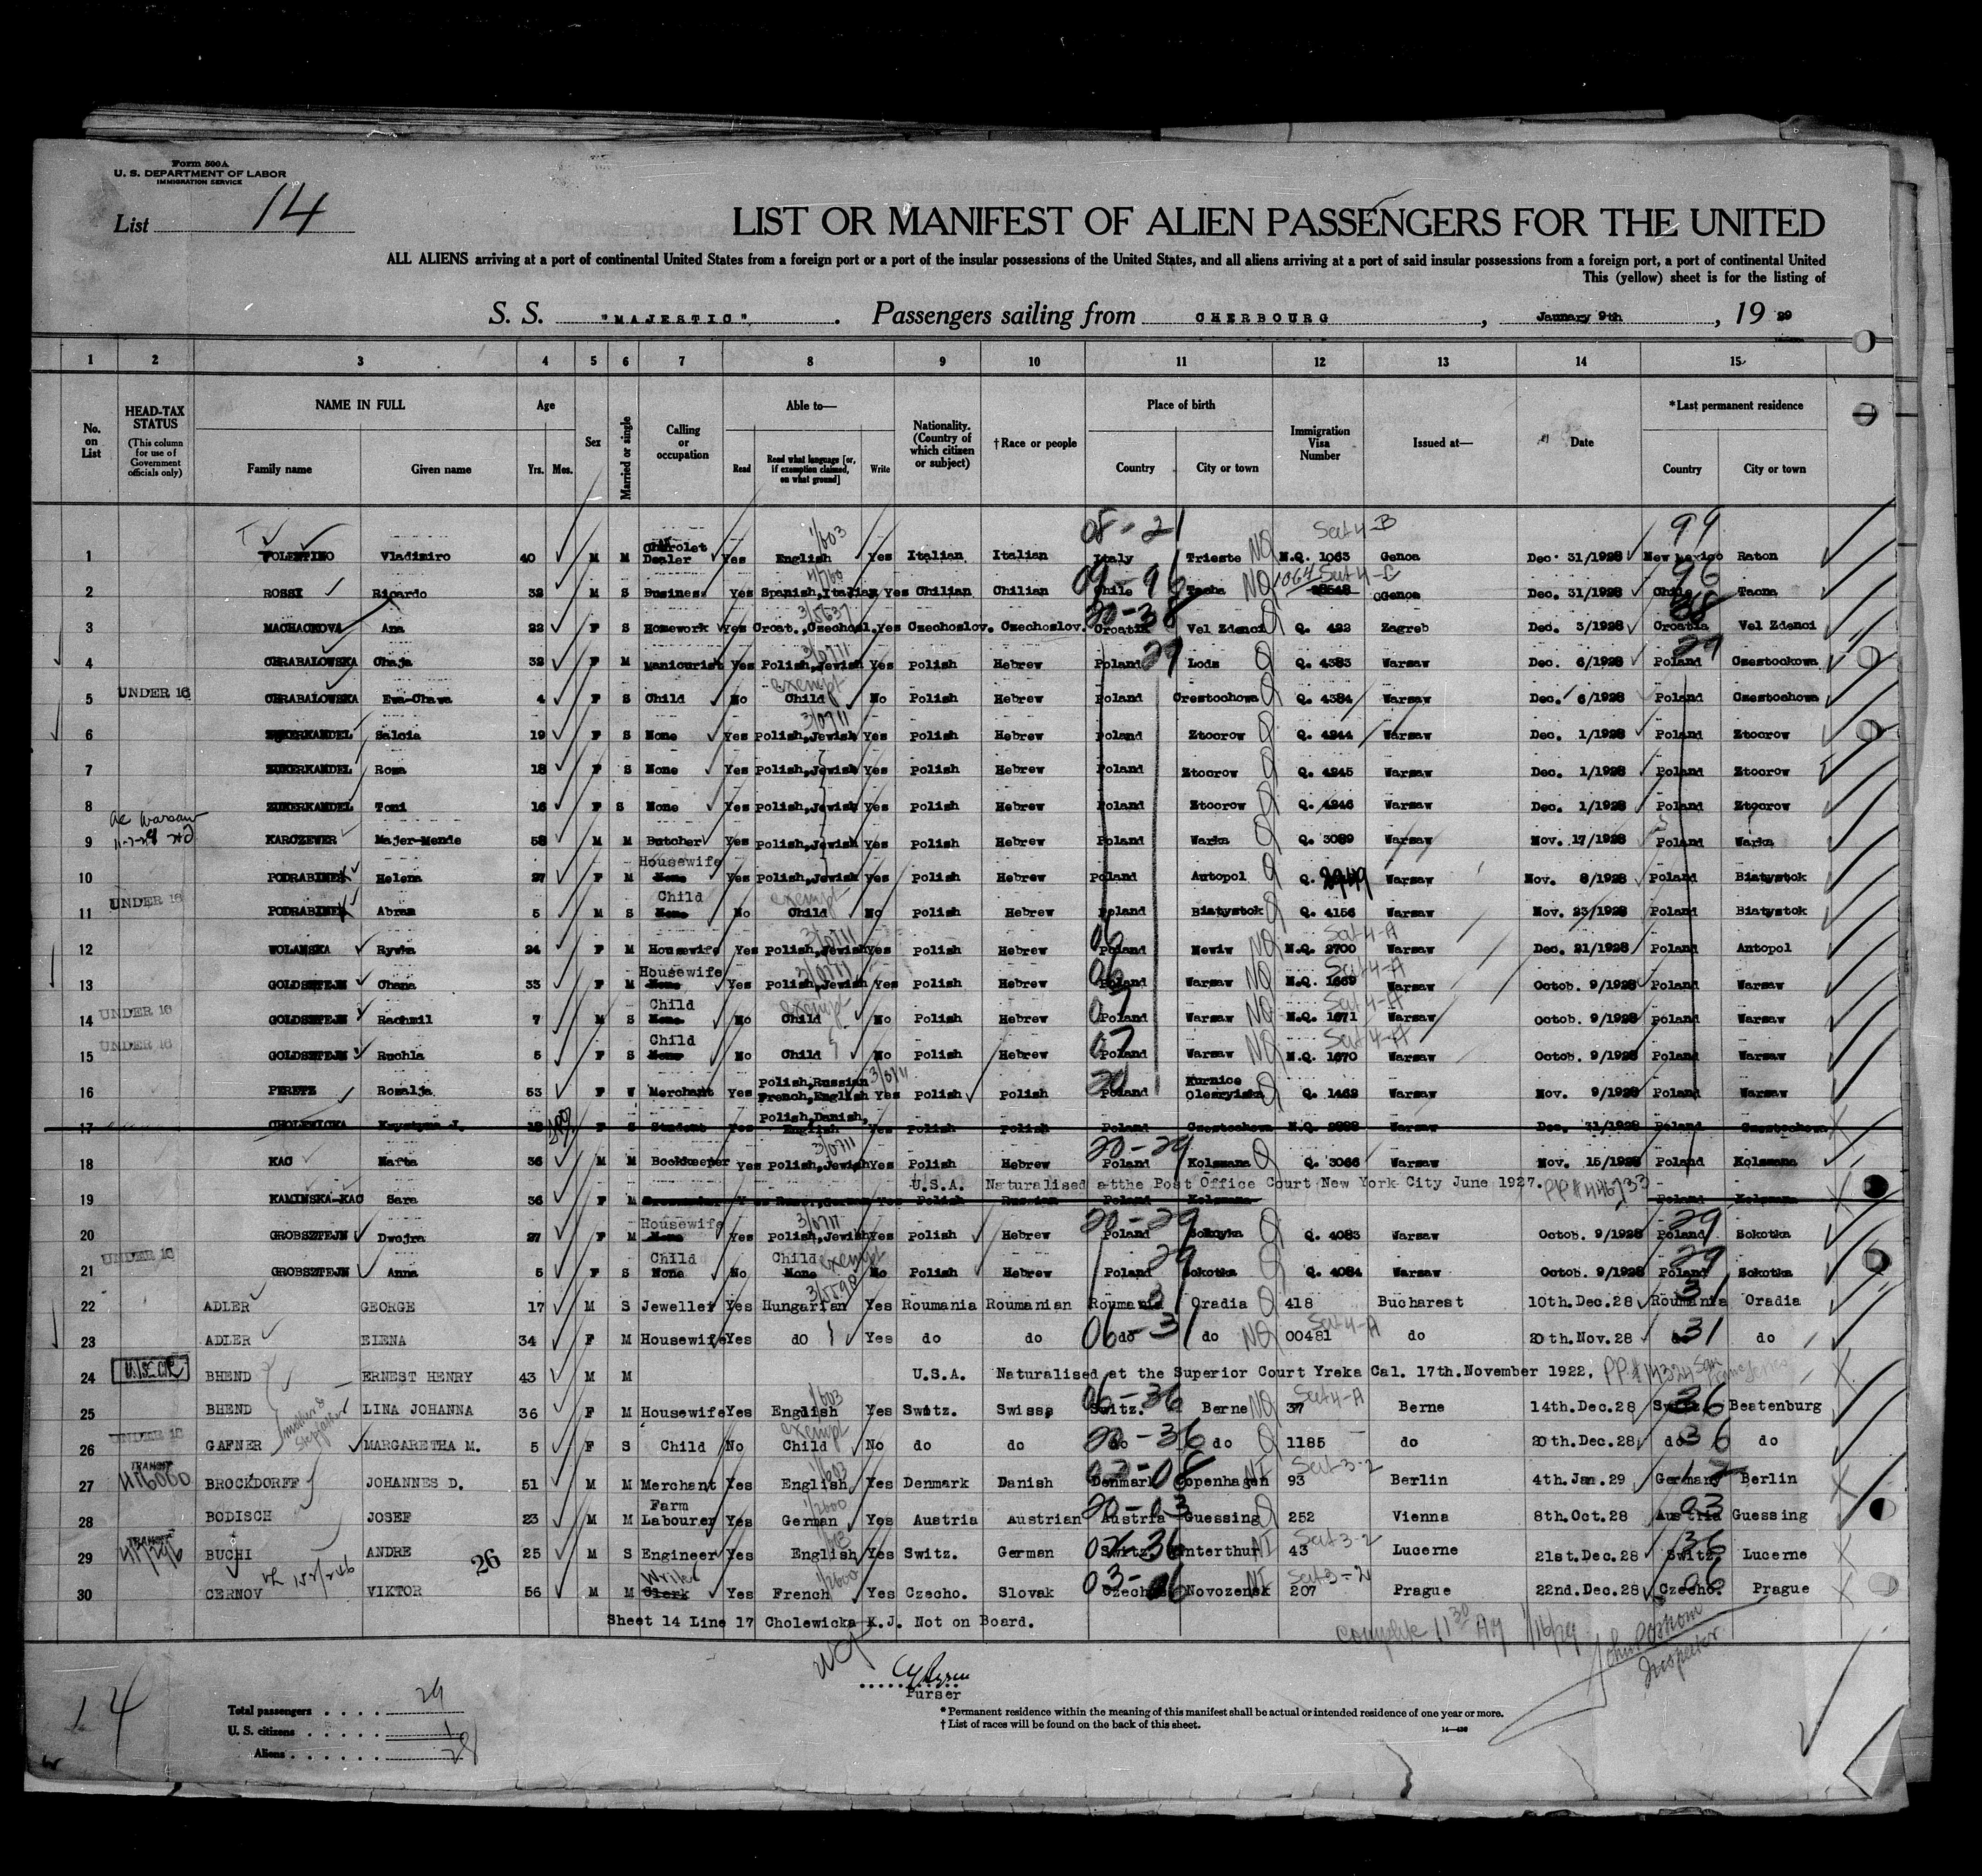 Form 500A
U. S. DEPARTMENT OF LABOR
IMMIGRATION SERVICE
List 14
LIST OR MANIFEST OF ALIEN PASSENGERS FOR THE UNITED
ALL ALIENS arriving at a port of continental United States from a foreign port or a port of the insular possessions of the United States, and all aliens arriving at a port of said insular possessions from a foreign port, a port of continental United
This (yellow) sheet is for the listing of
S. S. "MAJESTIC". Passengers sailing from CHERBOURG, January 9th, 19 29
1 2 3 4 5 6 7 8 9 10 11 12 13 14 15
No. on List
HEAD-TAX STATUS (This column for use of Government officials only)
NAME IN FULL Family name Given name
Age Yrs. Mos.
Sex
Married or single
Calling or occupation
Able to— Read Read what language [or, if exemption claimed, on what ground] Write
Nationality. (Country of which citizen or subject)
†Race or people
Place of birth Country City or town
Immigration Visa Number
Issued at—
Date
*Last permanent residence Country City or town
08-21 1/603 Sect 4-B 99
1 Vladimiro 40 M M Dealer Yes English Yes Italian Italian Italy Trieste NQ N.Q. 1063 Genoa Dec. 31/1928 New Mexico Raton
2 ROSSI Ricardo 32 M S Business Yes Spanish, Italian Yes Chilian Chilian Chile NQ 1064 Sect 4-C Genoa Dec. 31/1928 Chile Tacna
3 MACHACKOVA Ana 22 F S Homework Yes Croat., Czechosl. Yes Czechoslov. Czechoslov. Croatia Vel Zdenci Q Q. 422 Zagreb Dec. 3/1928 Croatia Vel Zdenci
4 CHRABALOWSKA Chaja 32 F M Manicurist Yes Polish, Jewish Yes Polish Hebrew Poland 29 Lodz Q Q. 4383 Warsaw Dec. 6/1928 Poland Czestockowa
5 UNDER 16 CHRABALOWSKA Ewa-Chawa 4 F S Child No exempt Child No Polish Hebrew Poland Crestochowa Q Q. 4384 Warsaw Dec. 6/1928 Poland Czestochowa
6 ZUKERKANDEL Salcia 19 F S None Yes Polish, Jewish Yes Polish Hebrew Poland Ztocrow Q Q. 4244 Warsaw Dec. 1/1928 Poland Ztocrow
7 ZUKERKANDEL Roza 18 F S None Yes Polish, Jewish Yes Polish Hebrew Poland Ztocrow Q Q. 4245 Warsaw Dec. 1/1928 Poland Ztocrow
8 ZUKERKANDEL Toni 16 F S None Yes Polish, Jewish Yes Polish Hebrew Poland Ztocrow Q Q. 4246 Warsaw Dec. 1/1928 Poland Ztocrow
9 KARCZEWER Majer-Mende 58 M M Butcher Yes Polish, Jewish Yes Polish Hebrew Poland Warka Q Q. 3089 Warsaw Nov. 17/1928 Poland Warka
Housewife
10 Helena 27 F M None Yes Polish, Jewish Yes Polish Hebrew Poland Antopol Q Q. 2949 Warsaw Nov. 8/1928 Poland Biatystok
Child
11 UNDER 16 Abram 5 M S None No exempt Child No Polish Hebrew Poland Biatystok Q Q. 4156 Warsaw Nov. 23/1928 Poland Biatystok
12 WOLANSKA Rywka 24 F M Housewife Yes Polish, Jewish Yes Polish Hebrew Poland Newiw NQ N.Q. 2700 Sect 4-A Warsaw Dec. 21/1928 Poland Antopol
Housewife
13 GOLDSZTEJN Chana 33 F M None Yes Polish, Jewish Yes Polish Hebrew Poland Warsaw NQ N.Q. 1669 Sect 4-A Warsaw Octob. 9/1928 Poland Warsaw
Child
14 UNDER 16 GOLDSZTEJN Rachmil 7 M S None No exempt Child No Polish Hebrew Poland Warsaw NQ N.Q. 1671 Sect 4-A Warsaw Octob. 9/1928 Poland Warsaw
Child
15 UNDER 16 GOLDSZTEJN Ruchla 5 F S None No Child No Polish Hebrew Poland Warsaw NQ N.Q. 1670 Sect 4-A Warsaw Octob. 9/1928 Poland Warsaw
16 PERETZ Rozalja 53 F W Merchant Yes Polish, Russian French, English Yes Polish Polish Poland Kurnice Q Q. 1462 Warsaw Nov. 9/1928 Poland Warsaw
17 CHOLEWICKA Krystyna J. F S Student Yes Polish, Danish, English Yes Polish Polish Poland Czestochowa Warsaw Dec. 31/1928 Poland Czestochowa
18 KAC Nafta 36 M M Bookkeeper Yes Polish, Jewish Yes Polish Hebrew 20-29 Poland Kolszana Q Q. 3066 Warsaw Nov. 15/1928 Poland Kolszana
U.S.A. Naturalised atthe Post Office Court New York City June 1927. PP#446733
19 KAMINSKA-KAC Sara 36 F M Polish Russian Poland Kolszana Poland Kolszana
Housewife
20 GROBSZTEJN Dwojra 27 F M None Yes Polish, Jewish Yes Polish Hebrew 20-29 Poland Q Q. 4083 Warsaw Octob. 9/1928 29 Poland Sokotka
Child Child exempt
21 UNDER 16 GROBSZTEJN Anna 5 F S None No None No Polish Hebrew Poland 29 Sokotka Q Q. 4084 Warsaw Octob. 9/1928 29 Poland Sokotka
22 ADLER GEORGE 17 M S Jeweller Yes Hungarian Yes Roumania Roumanian Roumania 31 Oradia Q 418 Bucharest 10th.Dec.28 Roumania 31 Oradia
23 ADLER ELENA 34 F M Housewife Yes do Yes do do 06-31 do do NQ 00481 Sect 4-A do 20th.Nov.28 do 31 do
24 BHEND ERNEST HENRY 43 M M U.S.A. Naturalised at the Superior Court Yreka Cal. 17th.November 1922.
25 BHEND LINA JOHANNA 36 F M Housewife Yes English 1/603 Yes Switz. Swiss 06-36 Switz. Berne NQ 37 Sect 4-A Berne 14th.Dec.28 Switz. 36 Beatenburg
26 UNDER 16 GAFNER mother & stepfather MARGARETHA M. 5 F S Child No exempt Child No do do 20-36 do do Q 1185 do 20th.Dec.28 do 36 do
27 TRANSIT BROCKDORFF JOHANNES D. 51 M M Merchant Yes English Yes Denmark Danish Denmark Copenhagen NI 93 Sect 3-2 Berlin 4th.Jan.29 Germany Berlin
28 BODISCH JOSEF 23 M M Farm Labourer Yes German 1/2600 Yes Austria Austrian 20-03 Austria Guessing Q 252 Vienna 8th.Oct.28 Austria 03 Guessing
29 TRANSIT BUCHI ANDRE 26 25 M S Engineer Yes English Yes Switz. German 02-36 Switz. Winterthur NI 43 Sect 3-2 Lucerne 21st.Dec.28 Switz. 36 Lucerne
30 CERNOV VIKTOR 56 M M Writer Clerk Yes French 1/2600 Yes Czecho. Slovak Czecho Novozensk NI 207 Sect 3-2 Prague 22nd.Dec.28 Czecho. 06 Prague
Sheet 14 Line 17 Cholewicka K.J. Not on Board.
Complete 11 30 AM 1/16/29
Inspector
Purser
14
Total passengers . . . . 29
U. S. citizens . . . . . 1
Aliens . . . . . . 28
* Permanent residence within the meaning of this manifest shall be actual or intended residence of one year or more.
† List of races will be found on the back of this sheet.
14—430